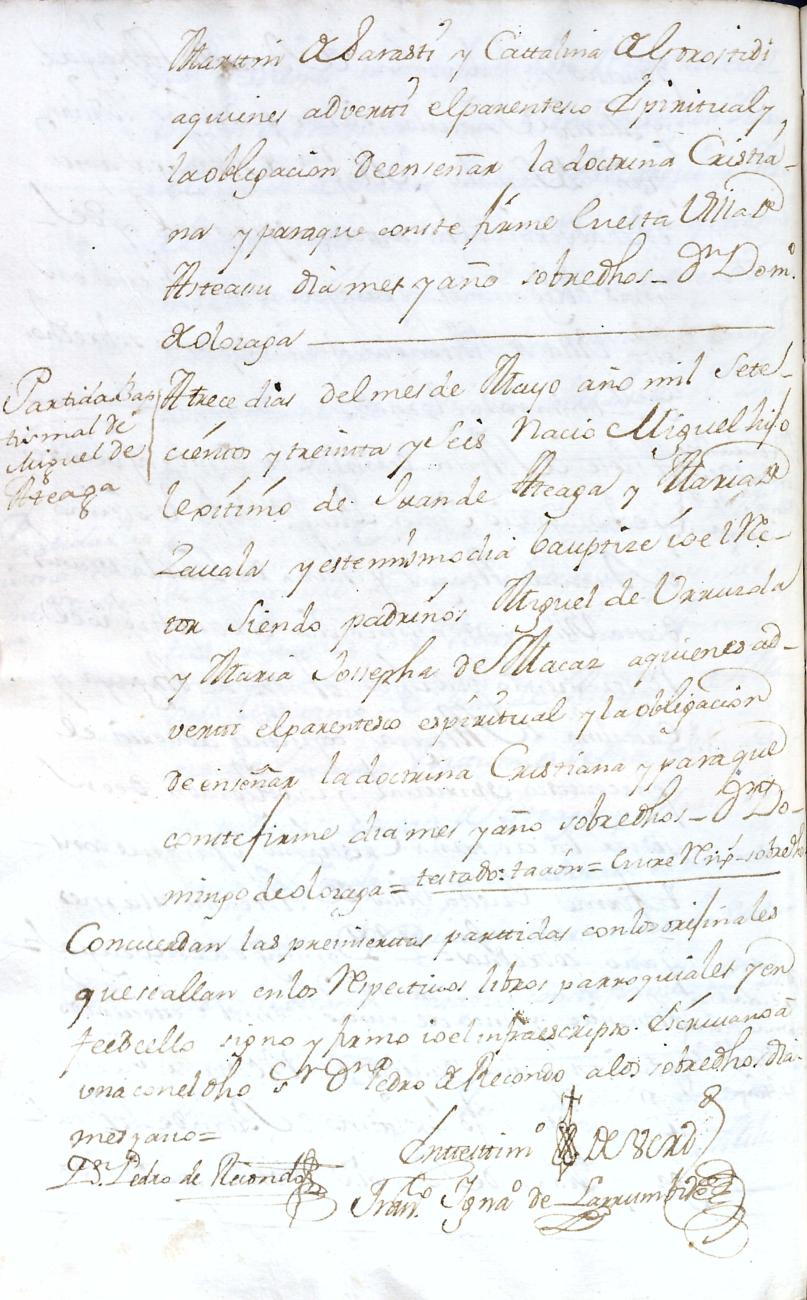 Marttin de Barasti y Cattalina de Gorostidi
aquienes adverti el parentesco Espiritual y
la obligacion de enseñar la doctrina Cristia-
na y paraque conste firme en esta Villa de
Asteasu dia mes y año sobredhos - Dn Domº
de oloraga
Partida Bap
tismal de
Miguel de
Ateaga
A trece dias del mes de Mayo año mil Sete-
cientos y treinta y Seis Nacio Miguel hijo
lexitimo de Juan de Ateaga y Maria de
Zavala y este mismo dia bauptize io el Re-
tor Siendo padrinos Miguel de Urruzola
y Maria Josepha de Macaz aquienes ad-
verti el parentesco espiritual y la obligacion
de enseñar la doctrina Cristiana y paraque
conste firme dia mes y año sobredhos - Dn Do-
mingo de oloraga = testado: = Entre - sobredh
Concuerdan las preinsertas parttidas con los orijinales
que se allan en los Respectivos libros parroquiales y en
fee de ello signo y firmo io el infraescripto Escrivano a
una con el dho Sr Dn Pedro de Recondo a los sobredhos dia
mes y año =
En testtimº de Verd
Dn Pedro de Recondo
Franco Ignaº de Larrumbide